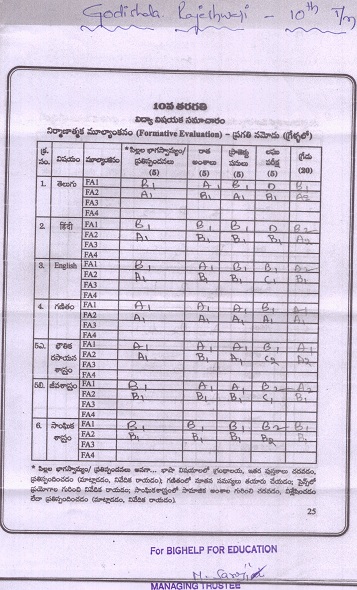 Godishala Rajeshwari - 10th T/m
10వ తరగతి
విద్యా విషయక సమాచారం
నిర్మాణాత్మక మూల్యాంకనం (Formative Evaluation) – ప్రగతి నమోదు (గ్రేడ్లలో)
క్ర. సం. విషయం మూల్యాంకనం * పిల్లల భాగస్వామ్యం/ ప్రతిస్పందనలు (5) రాత అంశాలు (5) ప్రాజెక్టు పనులు (5) లఘు పరీక్ష (5) గ్రేడు (20)
1. తెలుగు FA1 B1 A1 B1 D B1
FA2 A1 B1 A1 B1 A2
FA3
FA4
2. हिंदी FA1 B1 B1 B1 D B2
FA2 A1 B1 B1 B1 A2
FA3
FA4
3. English FA1 B1 A1 B1 B1 A2
FA2 A1 B1 B1 C1 B1
FA3
FA4
4. గణితం FA1 A1 A1 A1 B1 A1
FA2 A1 A1 A1 A1 A1
FA3
FA4
5ఎ. భౌతిక రసాయన శాస్త్రం FA1 A1 A1 A1 B1 A1
FA2 A1 B1 A1 C2 A2
FA3
FA4
5బి. జీవశాస్త్రం FA1 B1 A1 A1 B2 A2
FA2 B1 B1 A1 C1 B1
FA3
FA4
6. సాంఘిక శాస్త్రం FA1 B1 B1 A1 B2 B1
FA2 B1 B1 B1 B2 B1
FA3
FA4
* పిల్లల భాగస్వామ్యం/ ప్రతిస్పందనలు అనగా... భాషా విషయాలలో గ్రంథాలయ, ఇతర పుస్తకాలు చదవడం,
ప్రతిస్పందించడం (మాట్లాడడం, నివేదిక రాయడం); గణితంలో నూతన సమస్యలు తయారు చేయడం; సైన్స్‌లో
ప్రయోగాల గురించి నివేదిక రాయడం; సాంఘికశాస్త్రంలో సామాజిక అంశాల గురించి చదవడం, విశ్లేషించడం
లేదా ప్రతిస్పందించడం (మాట్లాడడం, నివేదిక రాయడం).
25
For BIGHELP FOR EDUCATION
MANAGING TRUSTEE